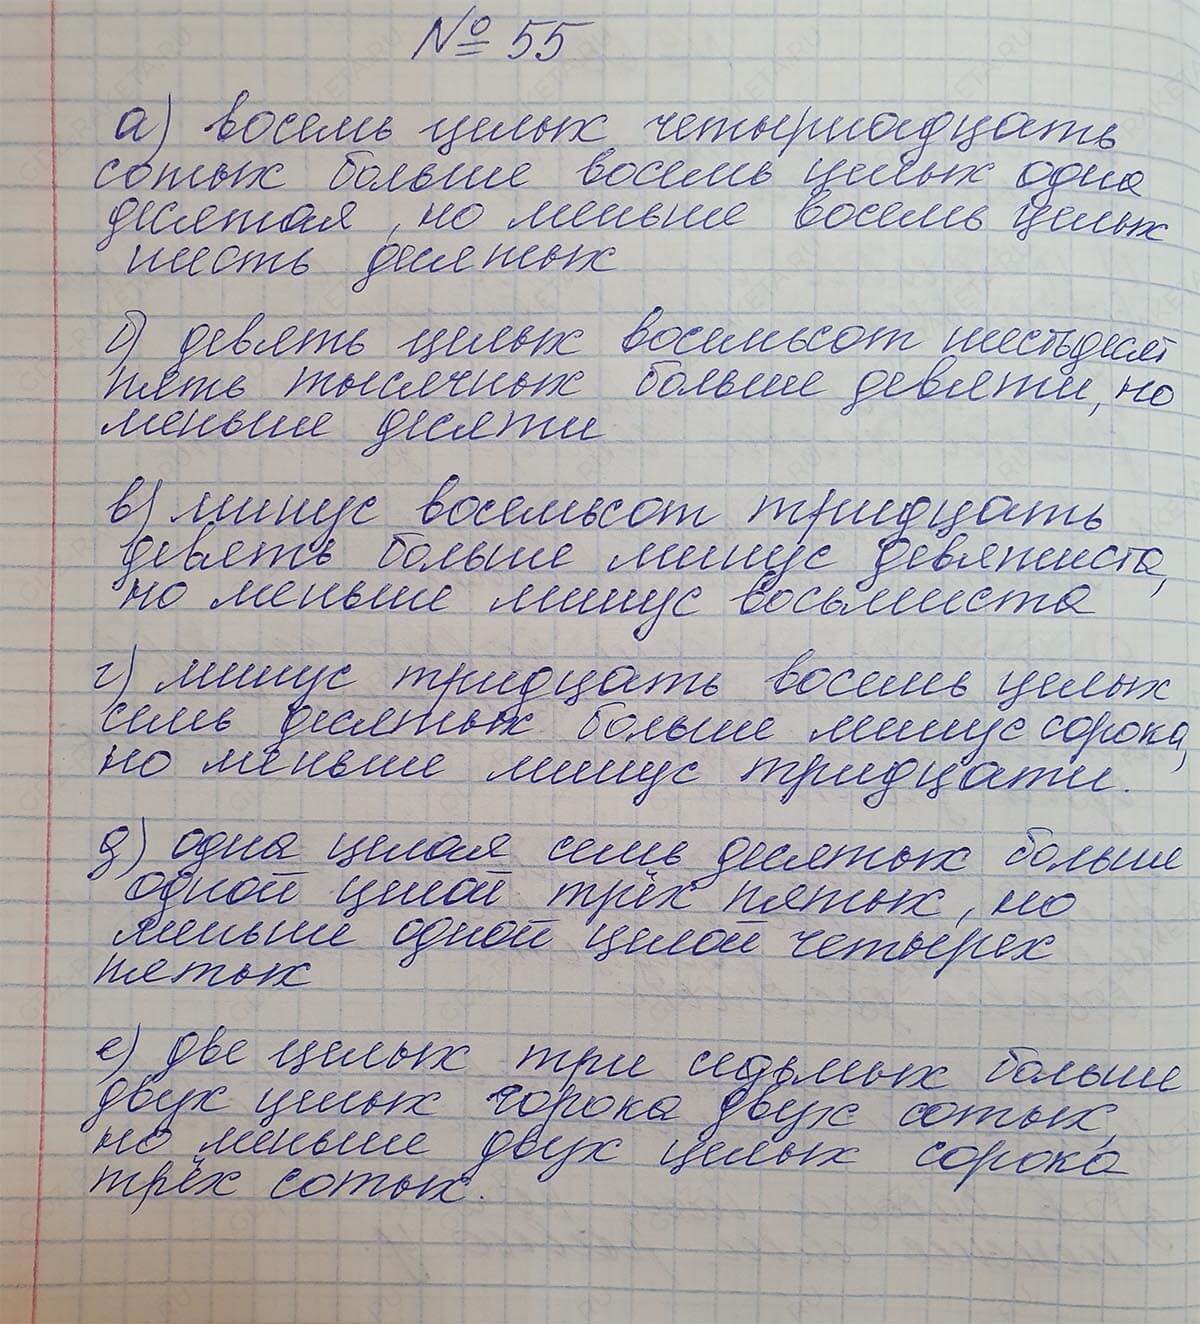 № 55
а) восемь целых четырнадцать
сотых больше восемь целых одна
десятая, но меньше восемь целых
шесть десятых
б) девять целых восемьсот шестьдесят
пять тысячных больше девяти, но
меньше десяти
в) минус восемьсот тридцать
девять больше минус девятиста,
но меньше минус восьмиста
г) минус тридцать восемь целых
семь десятых больше минус сорока,
но меньше минус тридцати.
д) одна целая семь десятых больше
одной целой трёх пятых, но
меньше одной целой четырех
пятых
е) две целых три седьмых больше
двух целых сорока двух сотых,
но меньше двух целых сорока
трёх сотых.